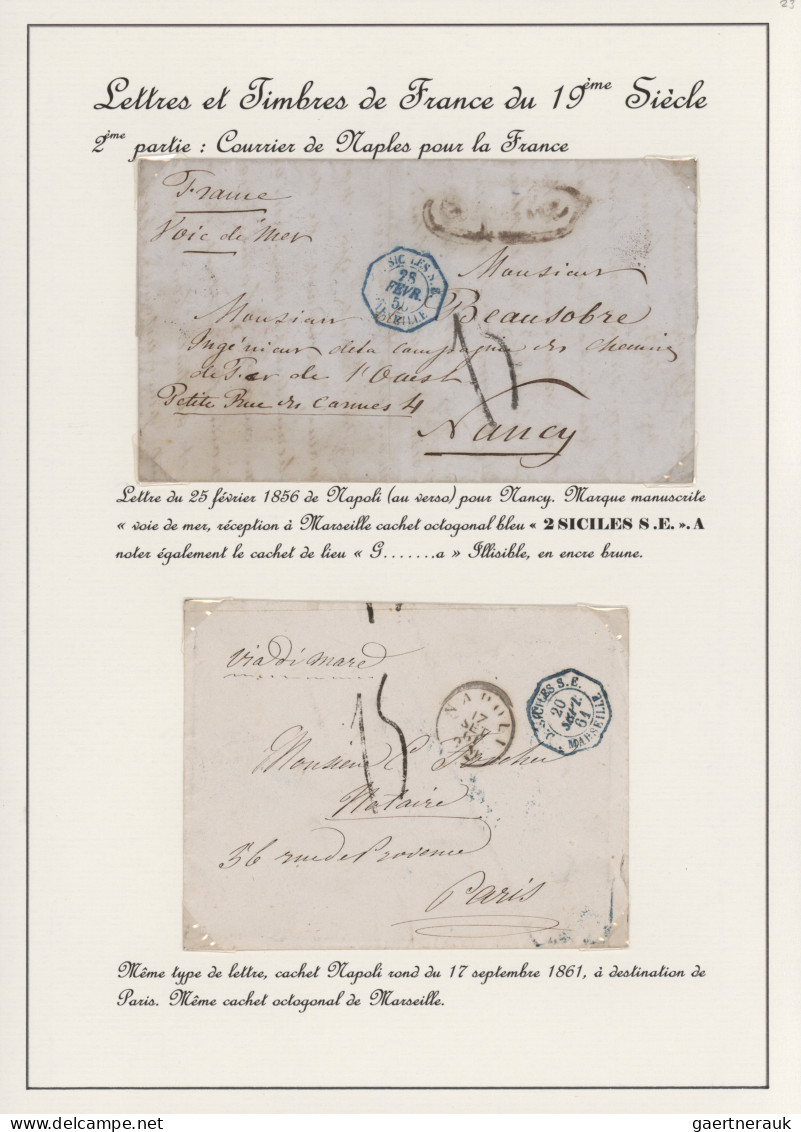 23
Lettres et Timbres de France du 19ème Siècle
2ème partie : Courrier de Naples pour la France
France
Voie de Mer
SICILES S.E.
28
FEVR.
Monsieur
Monsieur Beausobre
Ingénieur de la Compagnie des Chemins
de Fer de l'Ouest
Petite Rue des Carmes 4
Nancy
15
Lettre du 25 février 1856 de Napoli (au verso) pour Nancy. Marque manuscrite
« voie de mer, réception à Marseille cachet octogonal bleu « 2 SICILES S.E. ». A
noter également le cachet de lieu « G.......a » Illisible, en encre brune.
Via di mare
15
NAPOLI
17
SET
2 SICILES S.E.
20
SEPT.
61
MARSEILLE
Monsieur
Notaire
56 rue de Provence
Paris
Même type de lettre, cachet Napoli rond du 17 septembre 1861, à destination de
Paris. Même cachet octogonal de Marseille.
www.delcampe.net
gaertnerauk